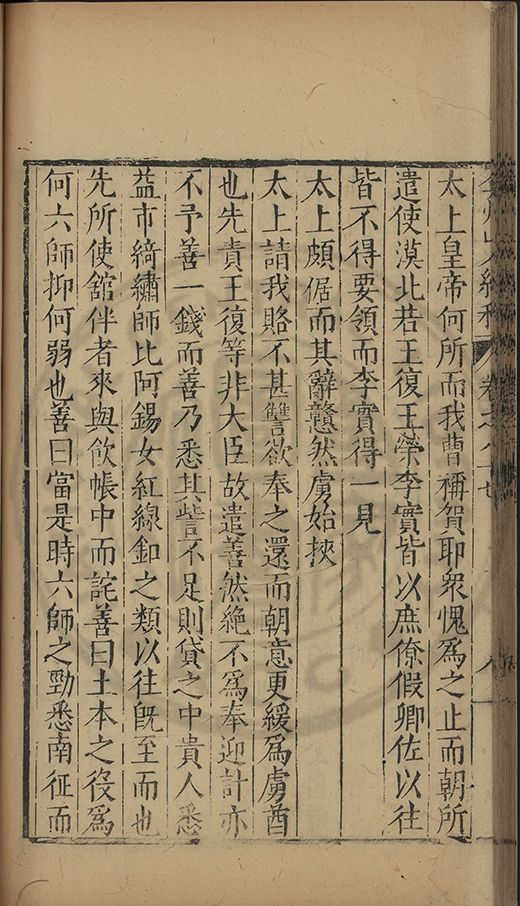 太上皇帝何所而我曹稱賀耶衆愧爲之止而朝所
遣使漠北若王復王榮李實皆以庶僚假卿佐以往
皆不得要領而李實得一見
太上頗倨而其辭戇然虜始挾
太上請我賂不甚讐欲奉之還而朝意更緩爲虜酋
也先責王復等非大臣故遣善然絶不爲奉迎計亦
不予善一錢而善乃悉其訾不足則貸之中貴人悉
益市綺繡師比阿錫女紅線釦之類以往既至而也
先所使舘伴者來與飮帳中而詫善曰土本之役爲
何六師抑何弱也善曰當是時六師之勁悉南征而